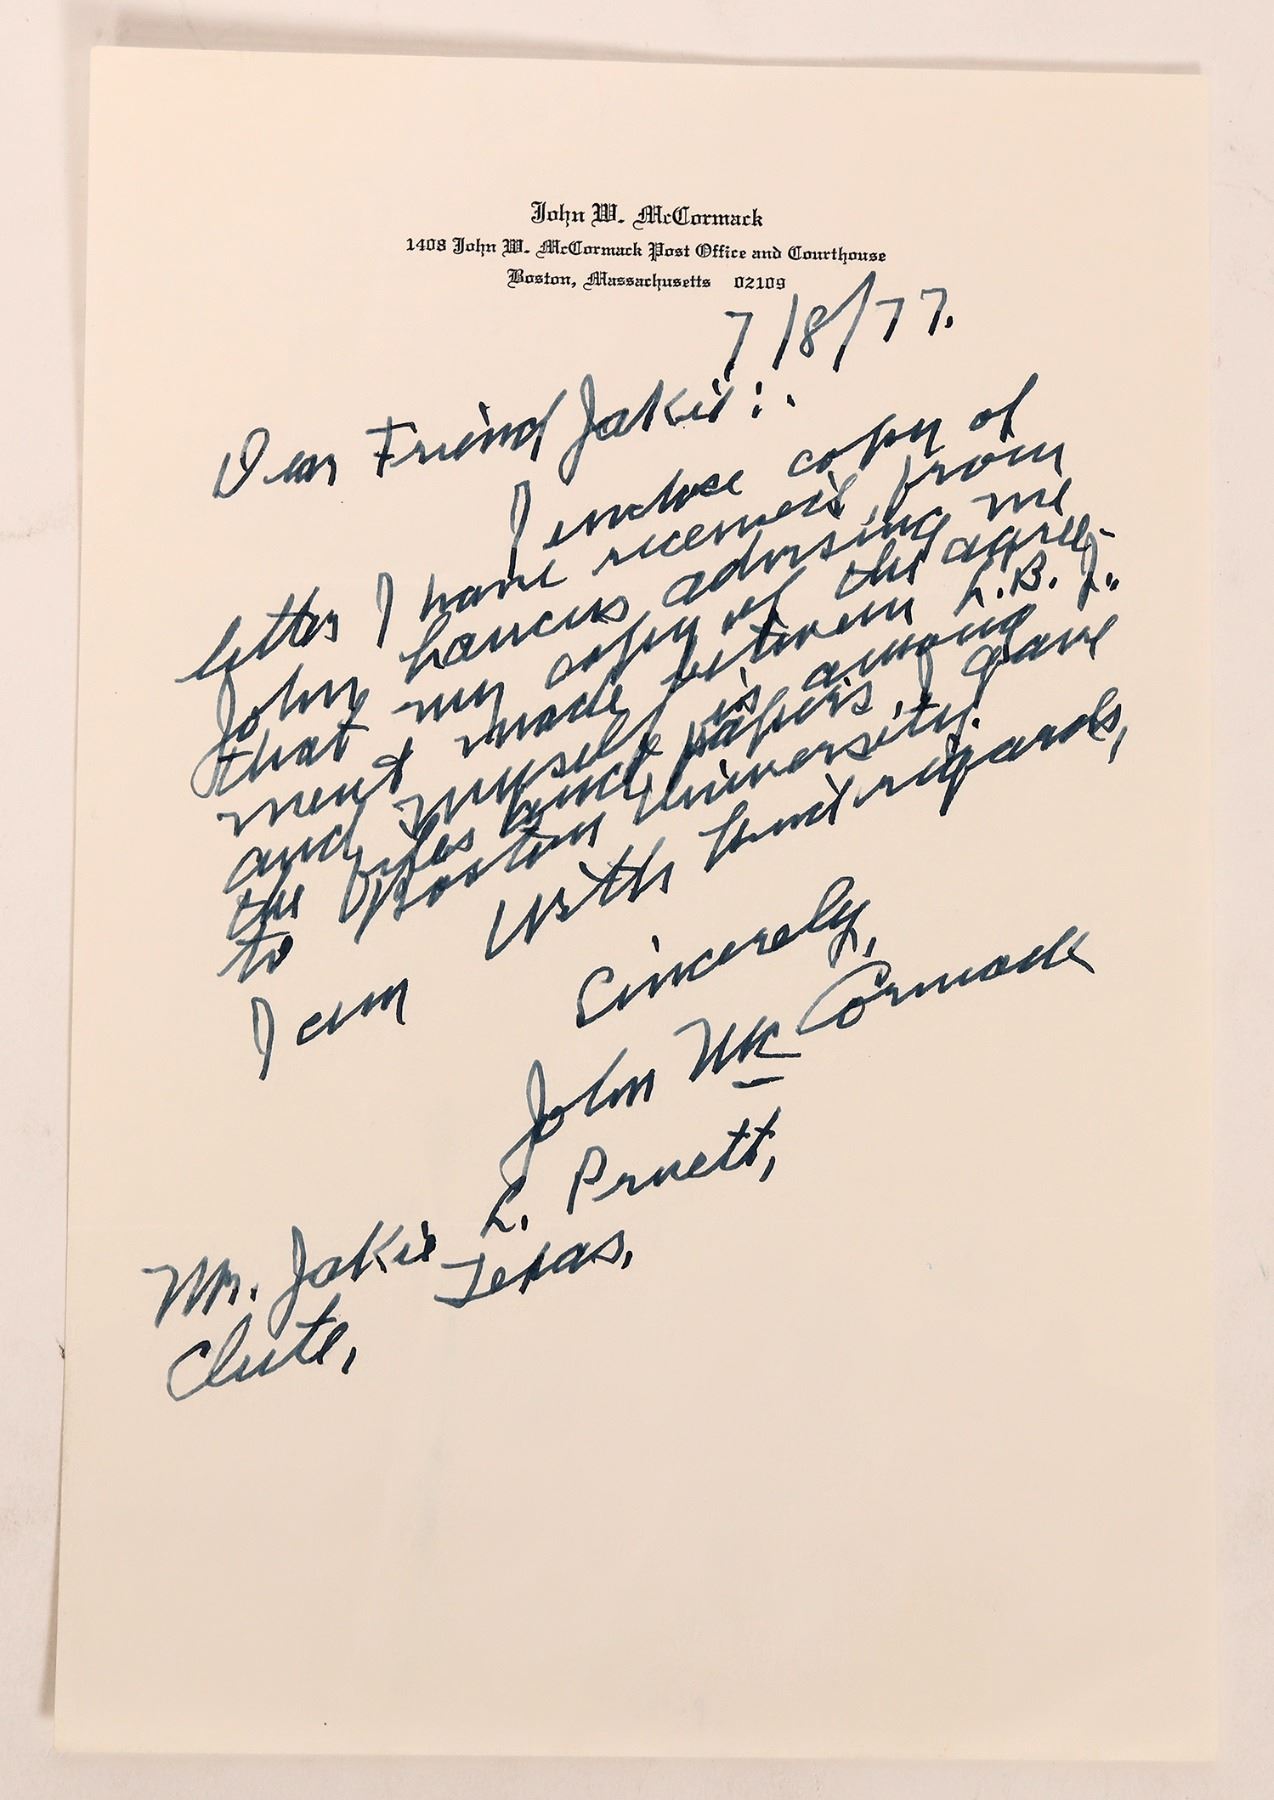 John W. McCormack
1408 John W. McCormack Post Office and Courthouse
Boston, Massachusetts 02109
7/8/77.
Dear Friend Jakie:.
I enclose copy of
letter I have received from
John advising me
that my copy of the agree-
ment made between L.B.J.
and myself is among
the files and papers I gave
to Boston University.
With kind regards,
I am
Sincerely,
John McCormack
Mr. Jakie L. Pruett,
Clute, Texas.